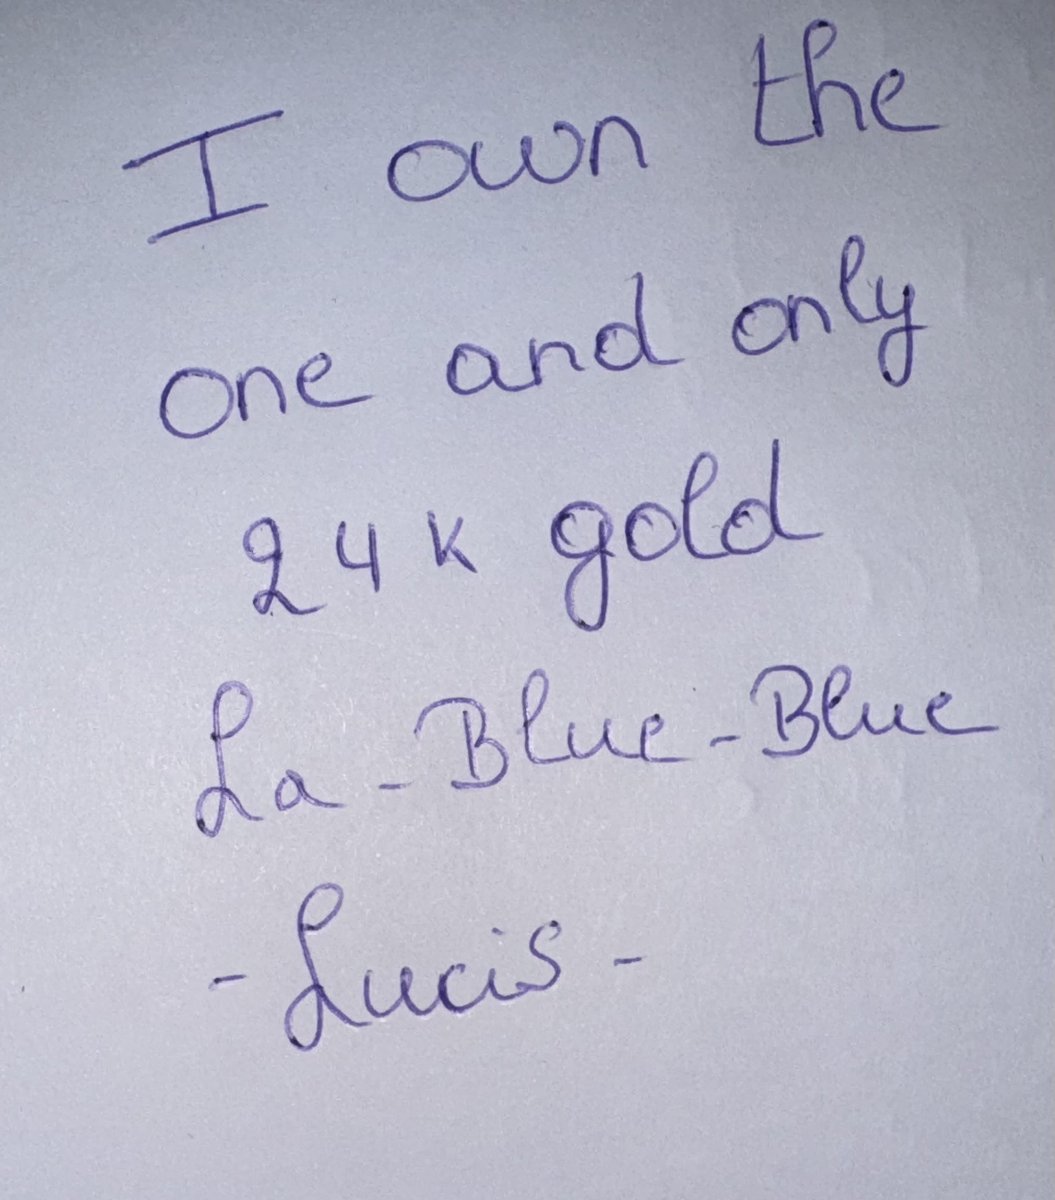 I own the
one and only
24K gold
La-Blue-Blue
-Lucis-